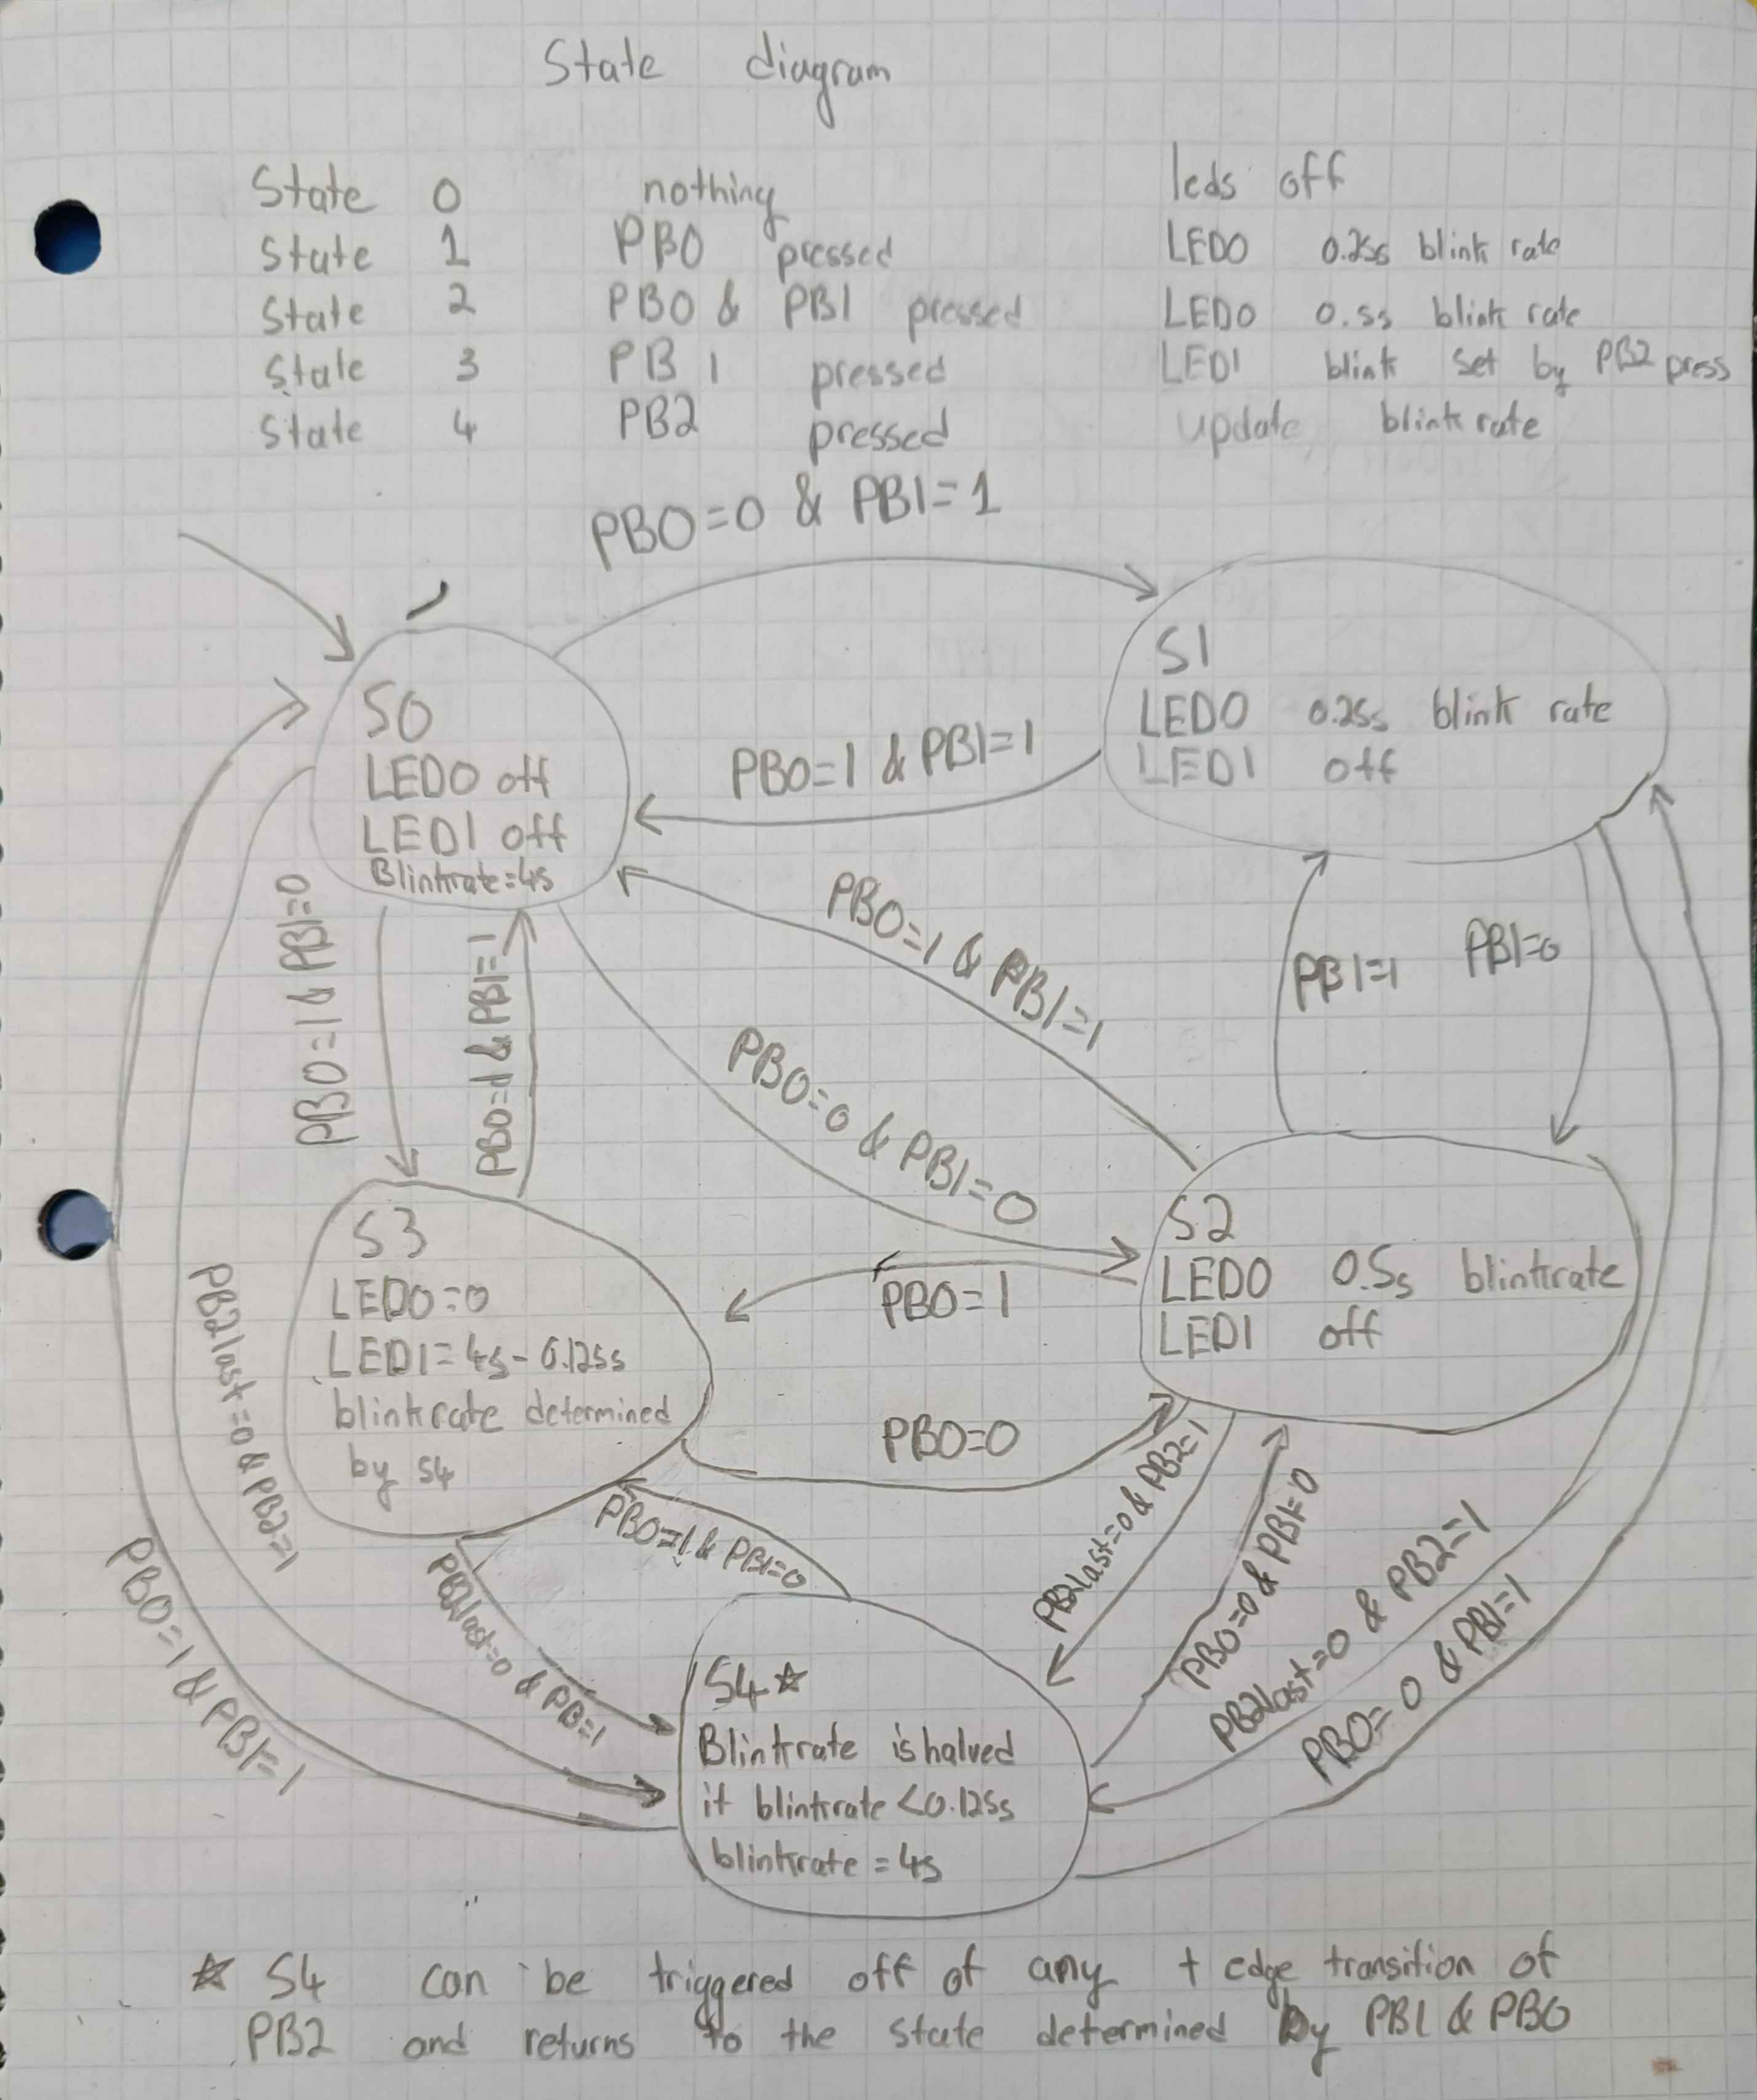 State diagram
State 0 nothing leds off
State 1 PB0 pressed LED0 0.25s blink rate
State 2 PB0 & PB1 pressed LED0 0.5s blink rate
State 3 PB1 pressed LED1 blink set by PB2 press
State 4 PB2 pressed update blinkrate
PB0=0 & PB1=1
S0
LED0 off
LED1 off
Blinkrate=4s
S1
LED0 0.25s blink rate
LED1 off
PB0=1 & PB1=1
PB0=1 & PB1=0
PB0=1 & PB1=1
PB0=1 & PB1=1
PB0=0 & PB1=0
PB1=1
PB1=0
S3
LED0=0
LED1=4s-0.125s
blinkrate determined
by S4
S2
LED0 0.5s blinkrate
LED1 off
PB0=1
PB0=0
PB2last=0 & PB2=1
PB0=1 & PB1=1
PB2last=0 & PB=1
PB0=1 & PB1=0
PB2last=0 & PB2=1
PB0=0 & PB1=0
PB2last=0 & PB2=1
PB0=0 & PB1=1
S4☆
Blinkrate is halved
if blinkrate <0.125s
blinkrate = 4s
☆ S4 can be triggered off of any + edge transition of
PB2 and returns to the state determined by PB1 & PB0